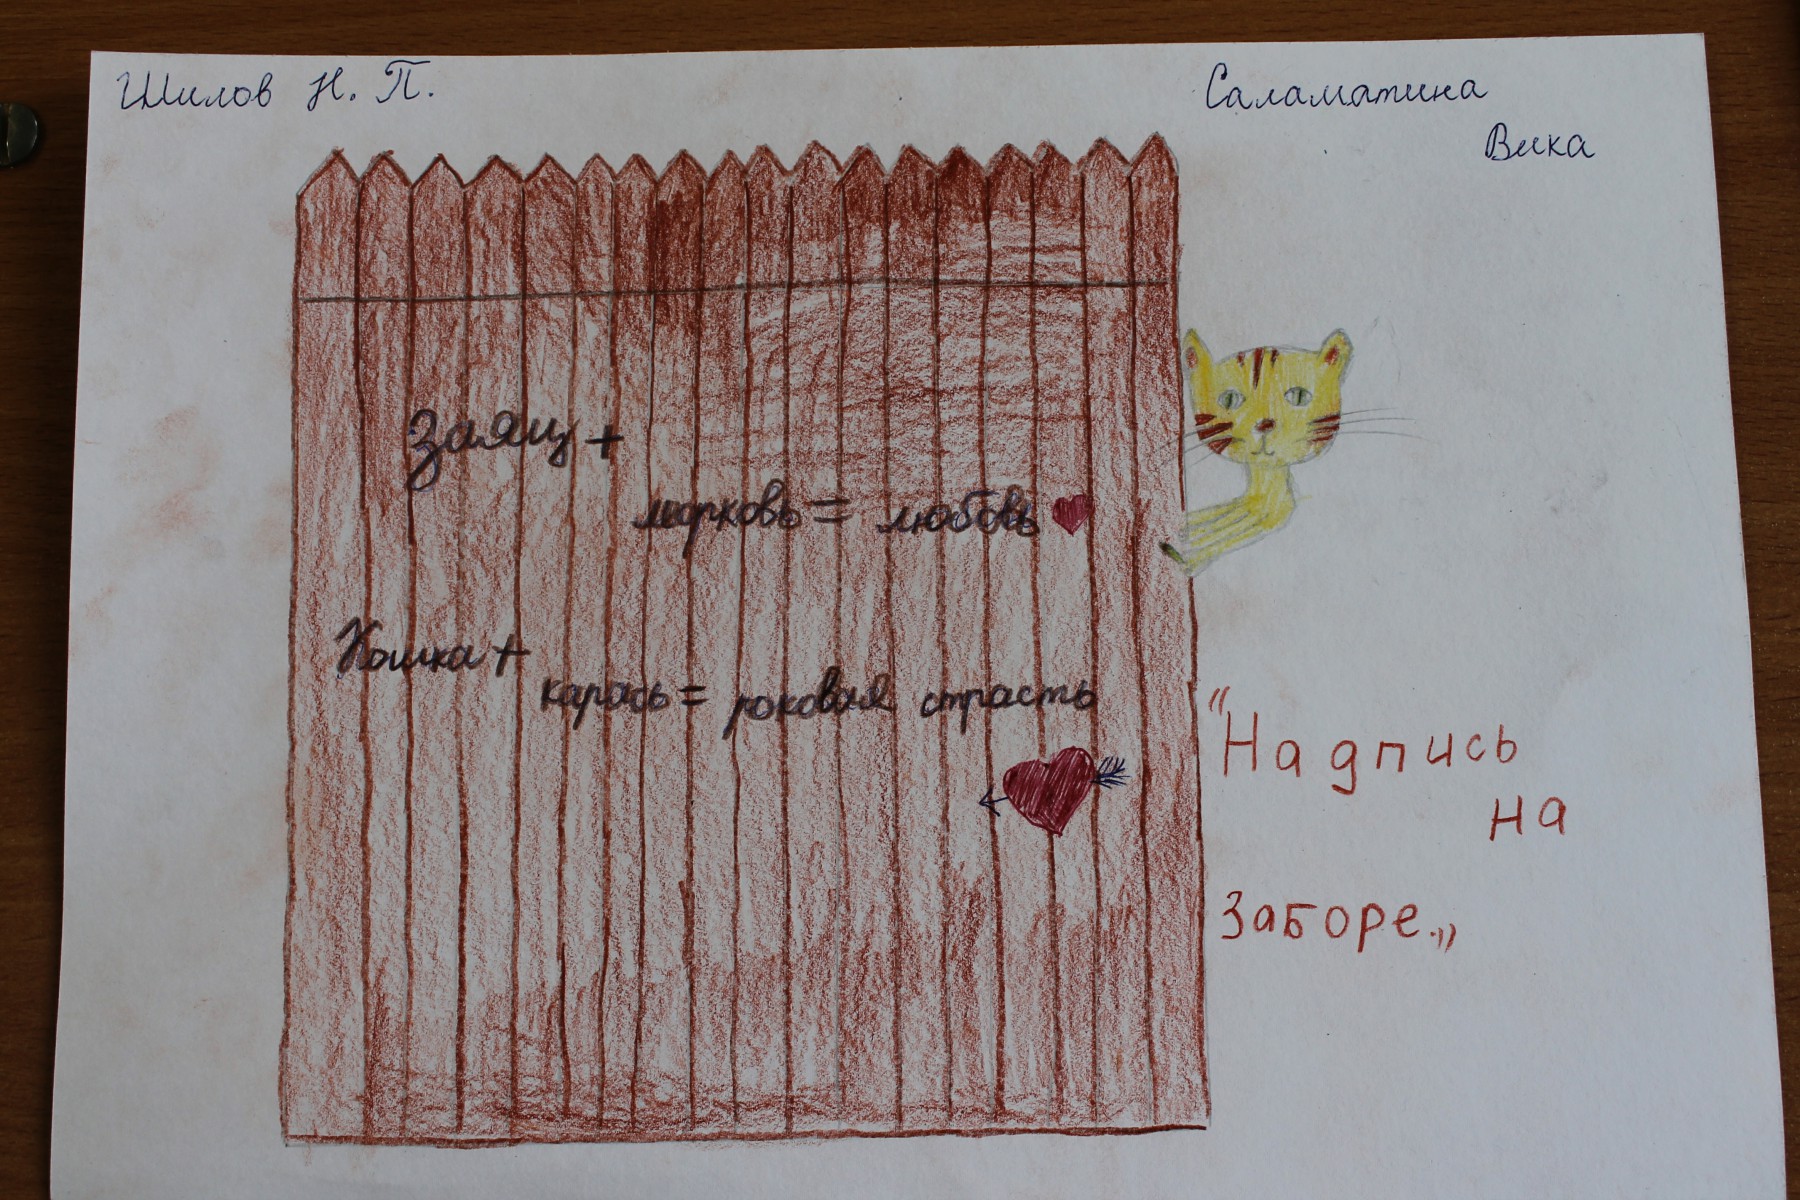 Шилов Н. П.
Саламатина
Вика
Заяц +
морковь = любовь
Кошка +
карась = роковая страсть
"Надпись
на
заборе."